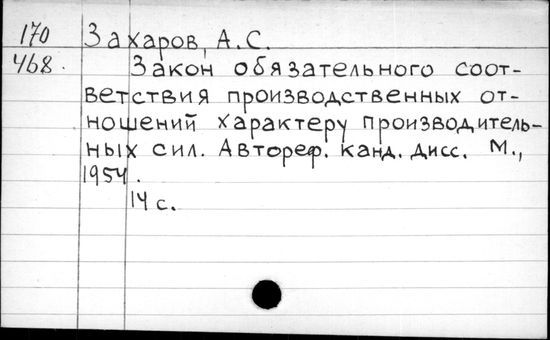 170 Захаров, А.С.
468. Закон обязательного соот-
ветствия производственных от-
ношений характеру производитель-
ных сил. Автореф. канд. дисс. М.,
1954.
14 с.